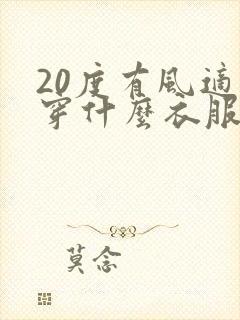 20度有风适
穿什麼衣服
莫念